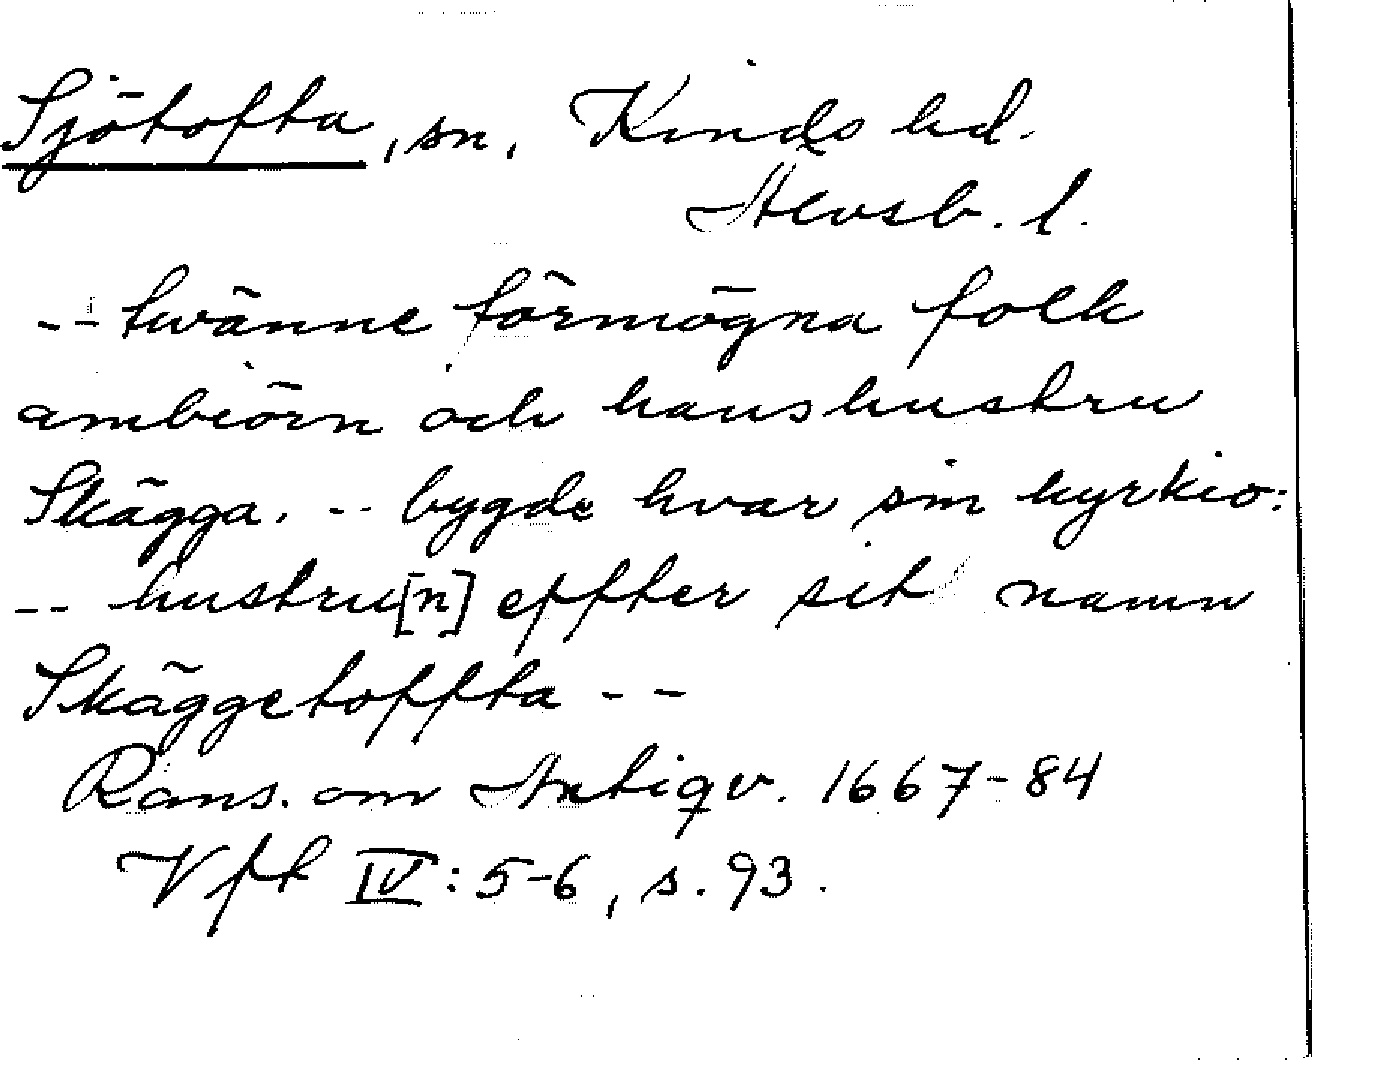 Sjötofta, sn, Kinds hd.
Älvsb. l.
-- twänne förmögna folk
ambiörn och hans hustru
Skägga. -- bygde hvar sin kyrkio:
-- hustru[n] effter sit namn
Skäggetoffta --
Rans. om Antiqv. 1667-84
Vft IV: 5-6, s. 93.